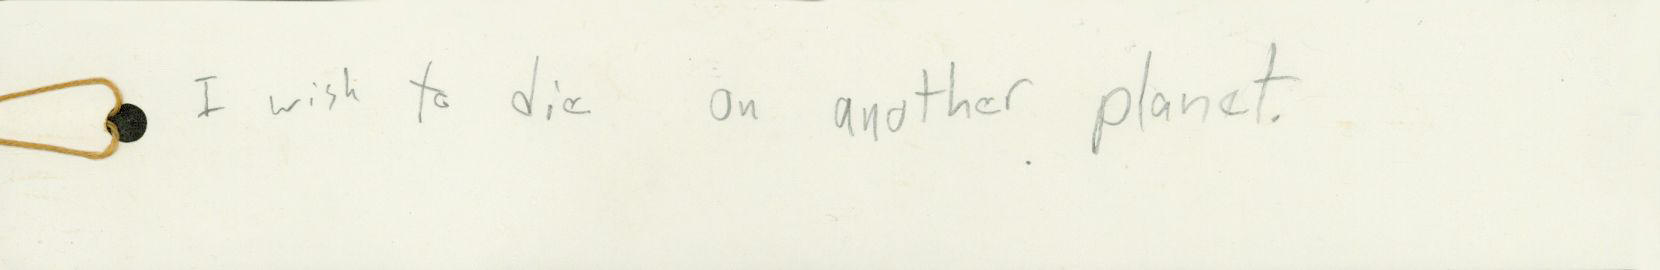 I wish to die on another planet.